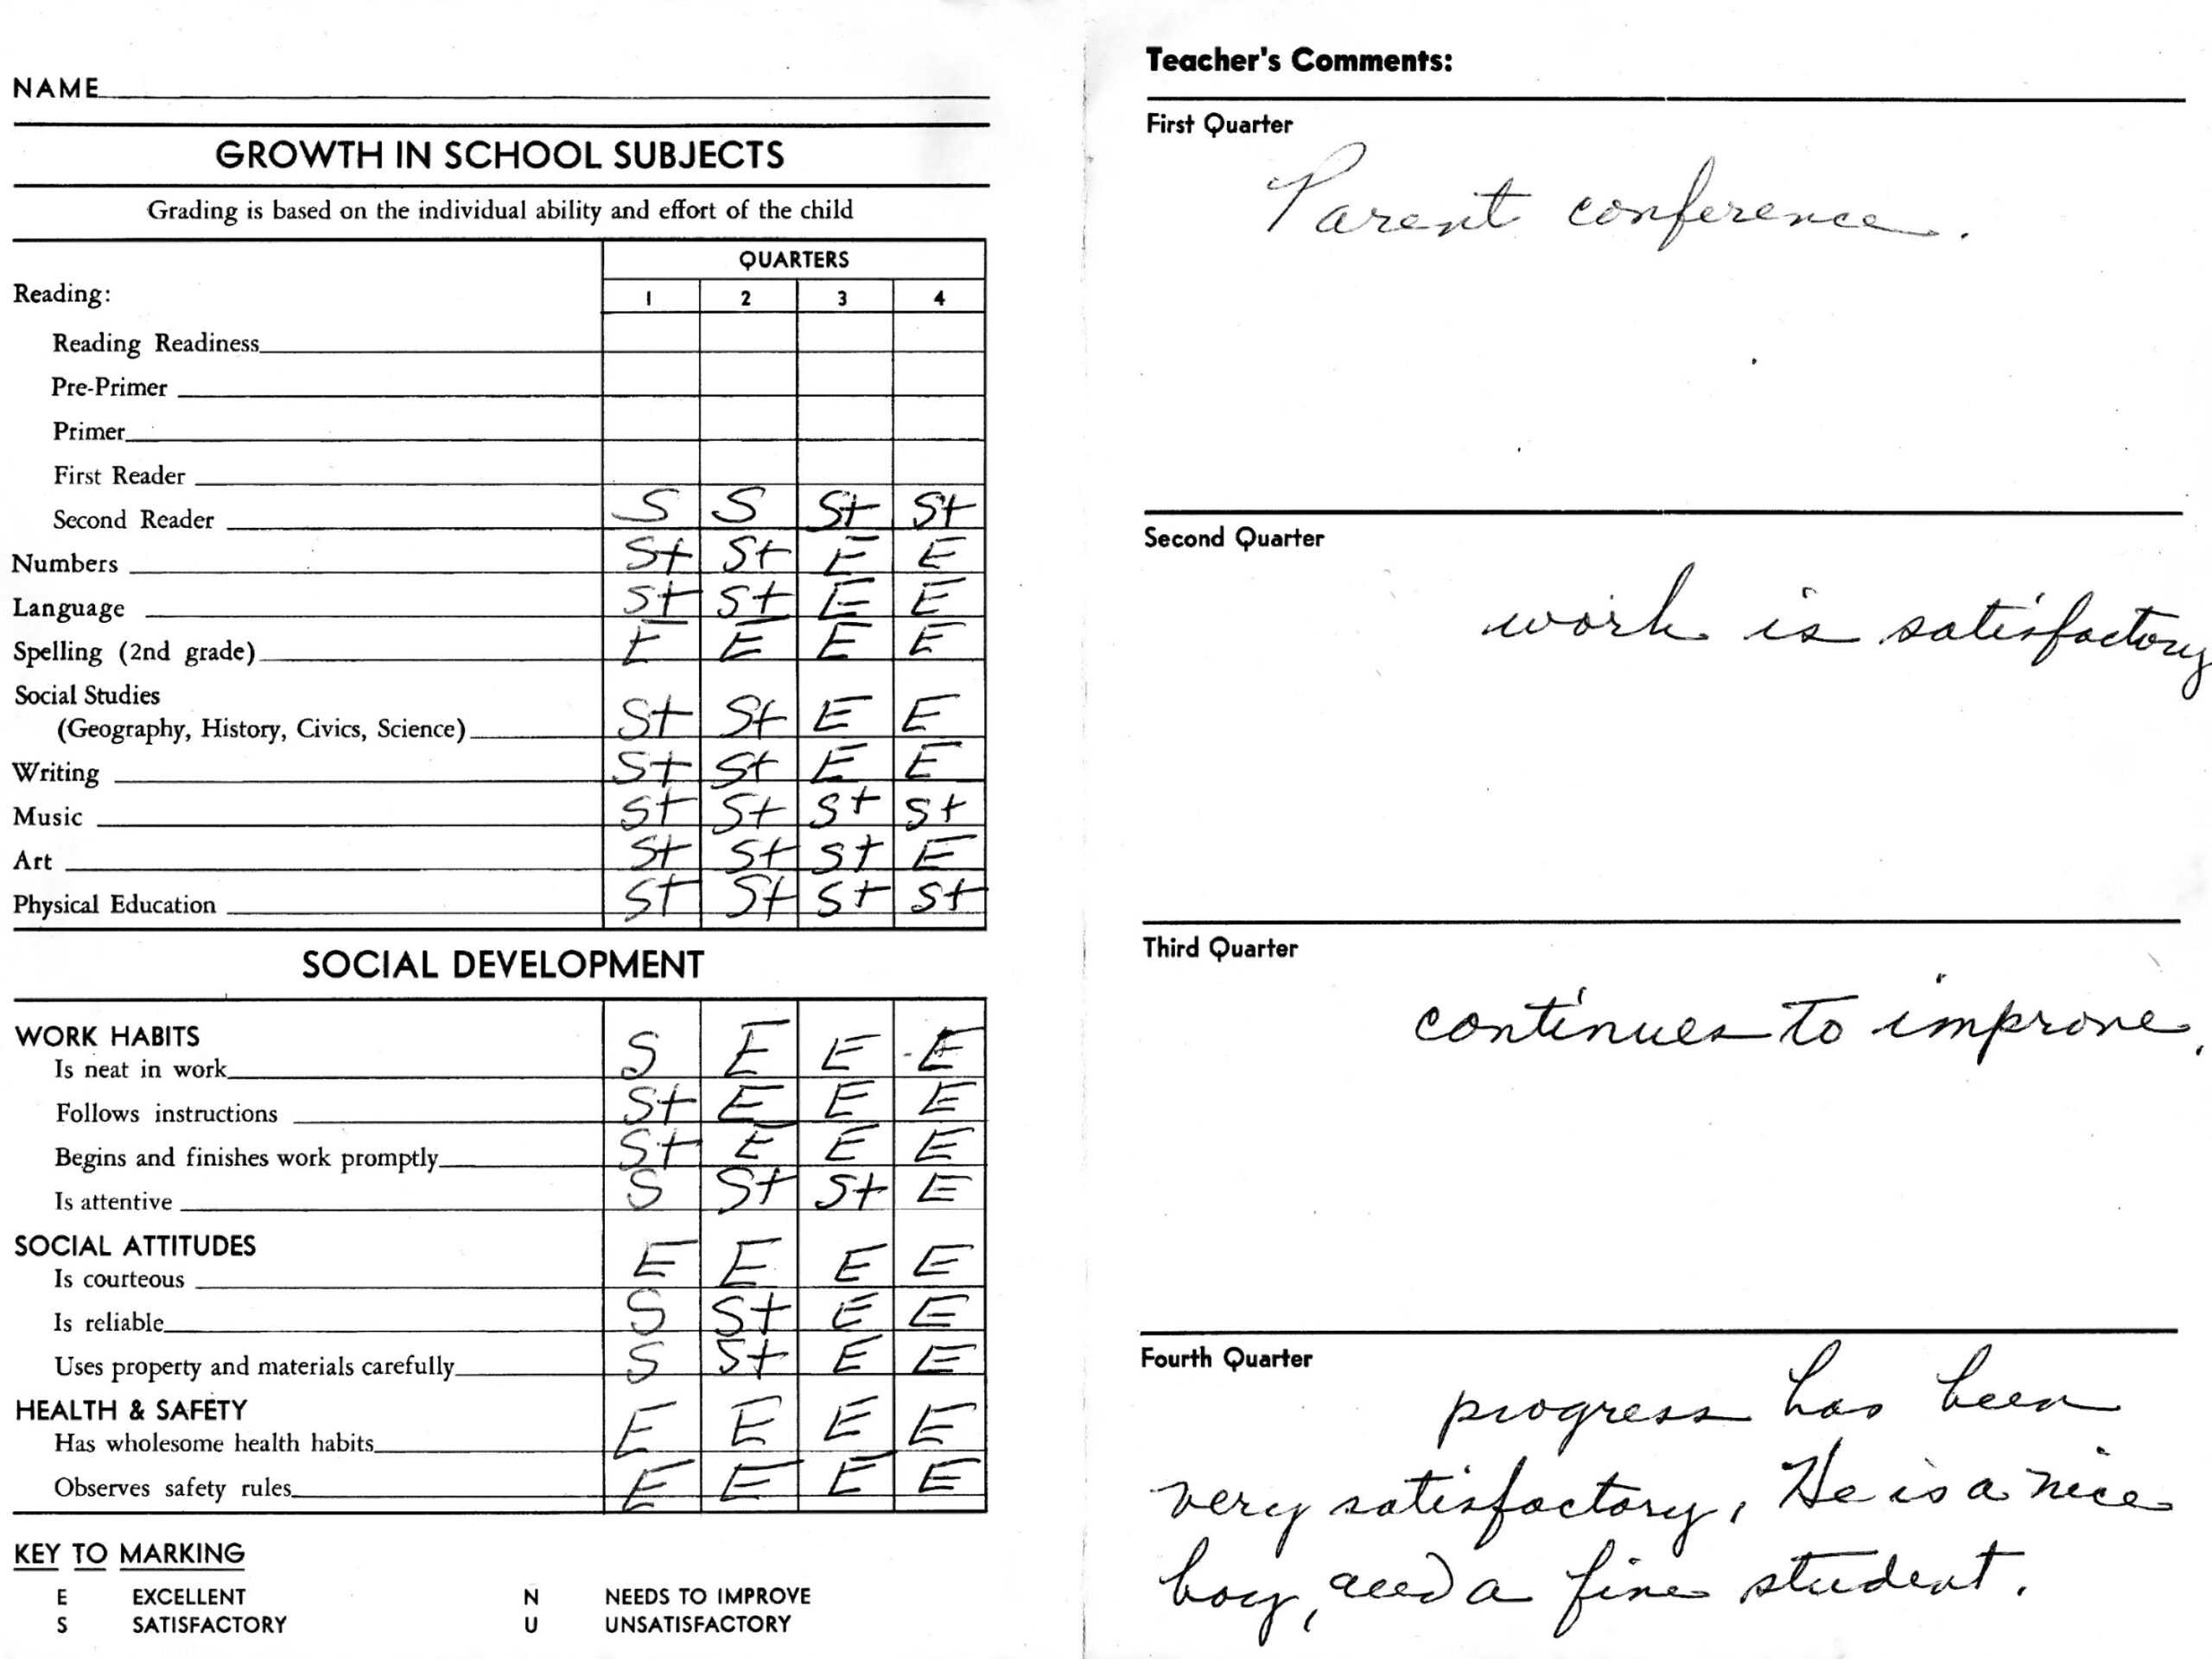 NAME
GROWTH IN SCHOOL SUBJECTS
Grading is based on the individual ability and effort of the child
QUARTERS
Reading: 1 2 3 4
Reading Readiness
Pre-Primer
Primer
First Reader
Second Reader S S S+ S+
Numbers S+ S+ E E
Language S+ S+ E E
Spelling (2nd grade) E E E E
Social Studies
(Geography, History, Civics, Science) S+ S+ E E
Writing S+ S+ E E
Music S+ S+ S+ S+
Art S+ S+ S+ E
Physical Education S+ S+ S+ S+
SOCIAL DEVELOPMENT
WORK HABITS
Is neat in work S E E E
Follows instructions S+ E E E
Begins and finishes work promptly S+ E E E
Is attentive S S+ S+ E
SOCIAL ATTITUDES
Is courteous E E E E
Is reliable S S+ E E
Uses property and materials carefully S S+ E E
HEALTH & SAFETY
Has wholesome health habits E E E E
Observes safety rules E E E E
KEY TO MARKING
E EXCELLENT N NEEDS TO IMPROVE
S SATISFACTORY U UNSATISFACTORY
Teacher's Comments:
First Quarter
Parent conference.
Second Quarter
work is satisfactory
Third Quarter
continues to improve.
Fourth Quarter
progress has been
very satisfactory. He is a nice
boy, and a fine student.